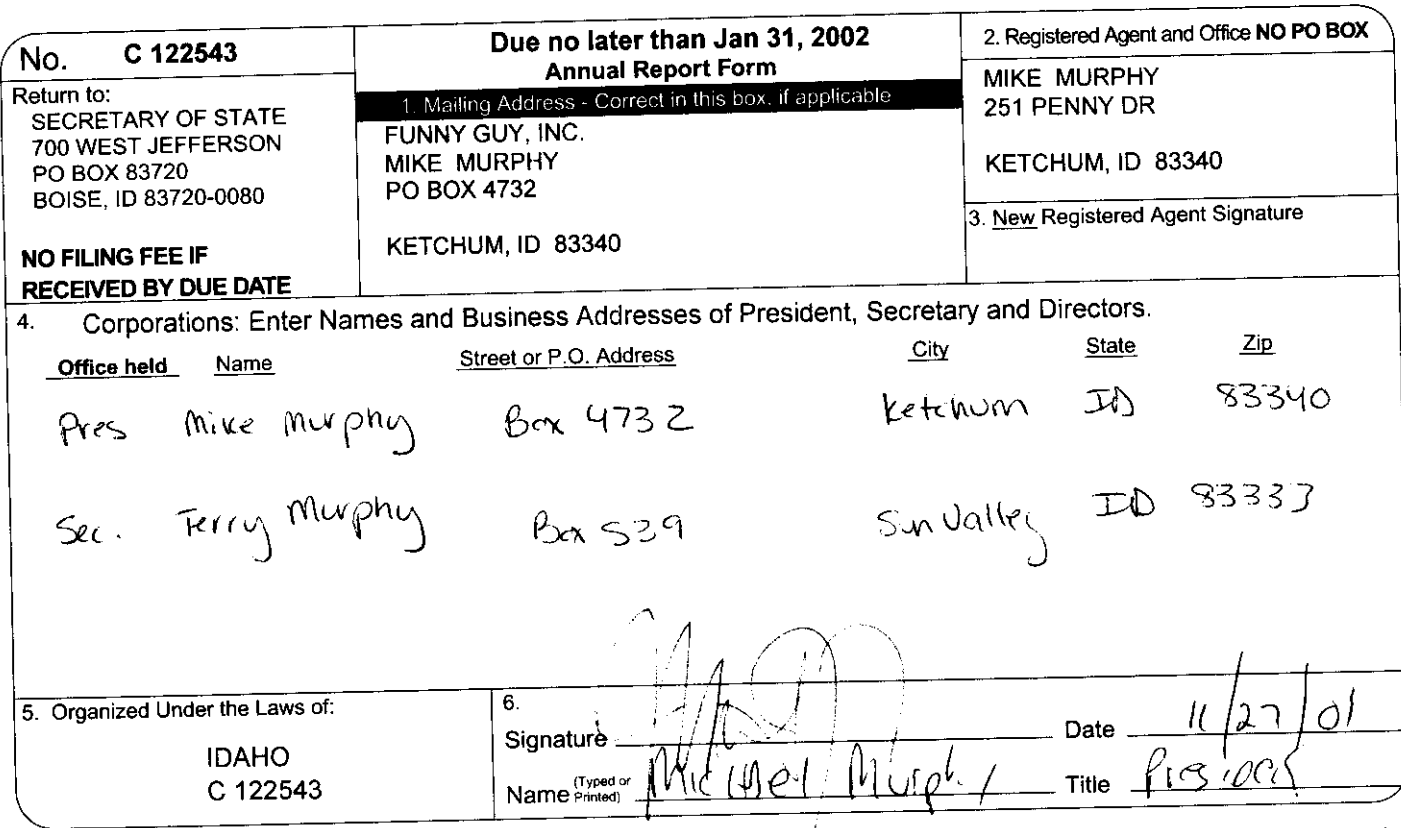 No. C 122543
Return to:
SECRETARY OF STATE
700 WEST JEFFERSON
PO BOX 83720
BOISE, ID 83720-0080
NO FILING FEE IF
RECEIVED BY DUE DATE
Due no later than Jan 31, 2002
Annual Report Form
1. Mailing Address - Correct in this box, if applicable
FUNNY GUY, INC.
MIKE MURPHY
PO BOX 4732
KETCHUM, ID 83340
2. Registered Agent and Office NO PO BOX
MIKE MURPHY
251 PENNY DR
KETCHUM, ID 83340
3. New Registered Agent Signature
4. Corporations: Enter Names and Business Addresses of President, Secretary and Directors.
Office held Name Street or P.O. Address City State Zip
Pres Mike Murphy Box 4732 Ketchum ID 83340
Sec. Terry Murphy Box 539 Sun Valley ID 83333
5. Organized Under the Laws of:
IDAHO
C 122543
6.
Signature Date 11/27/01
Name (Typed or Printed) Michael Murphy Title President